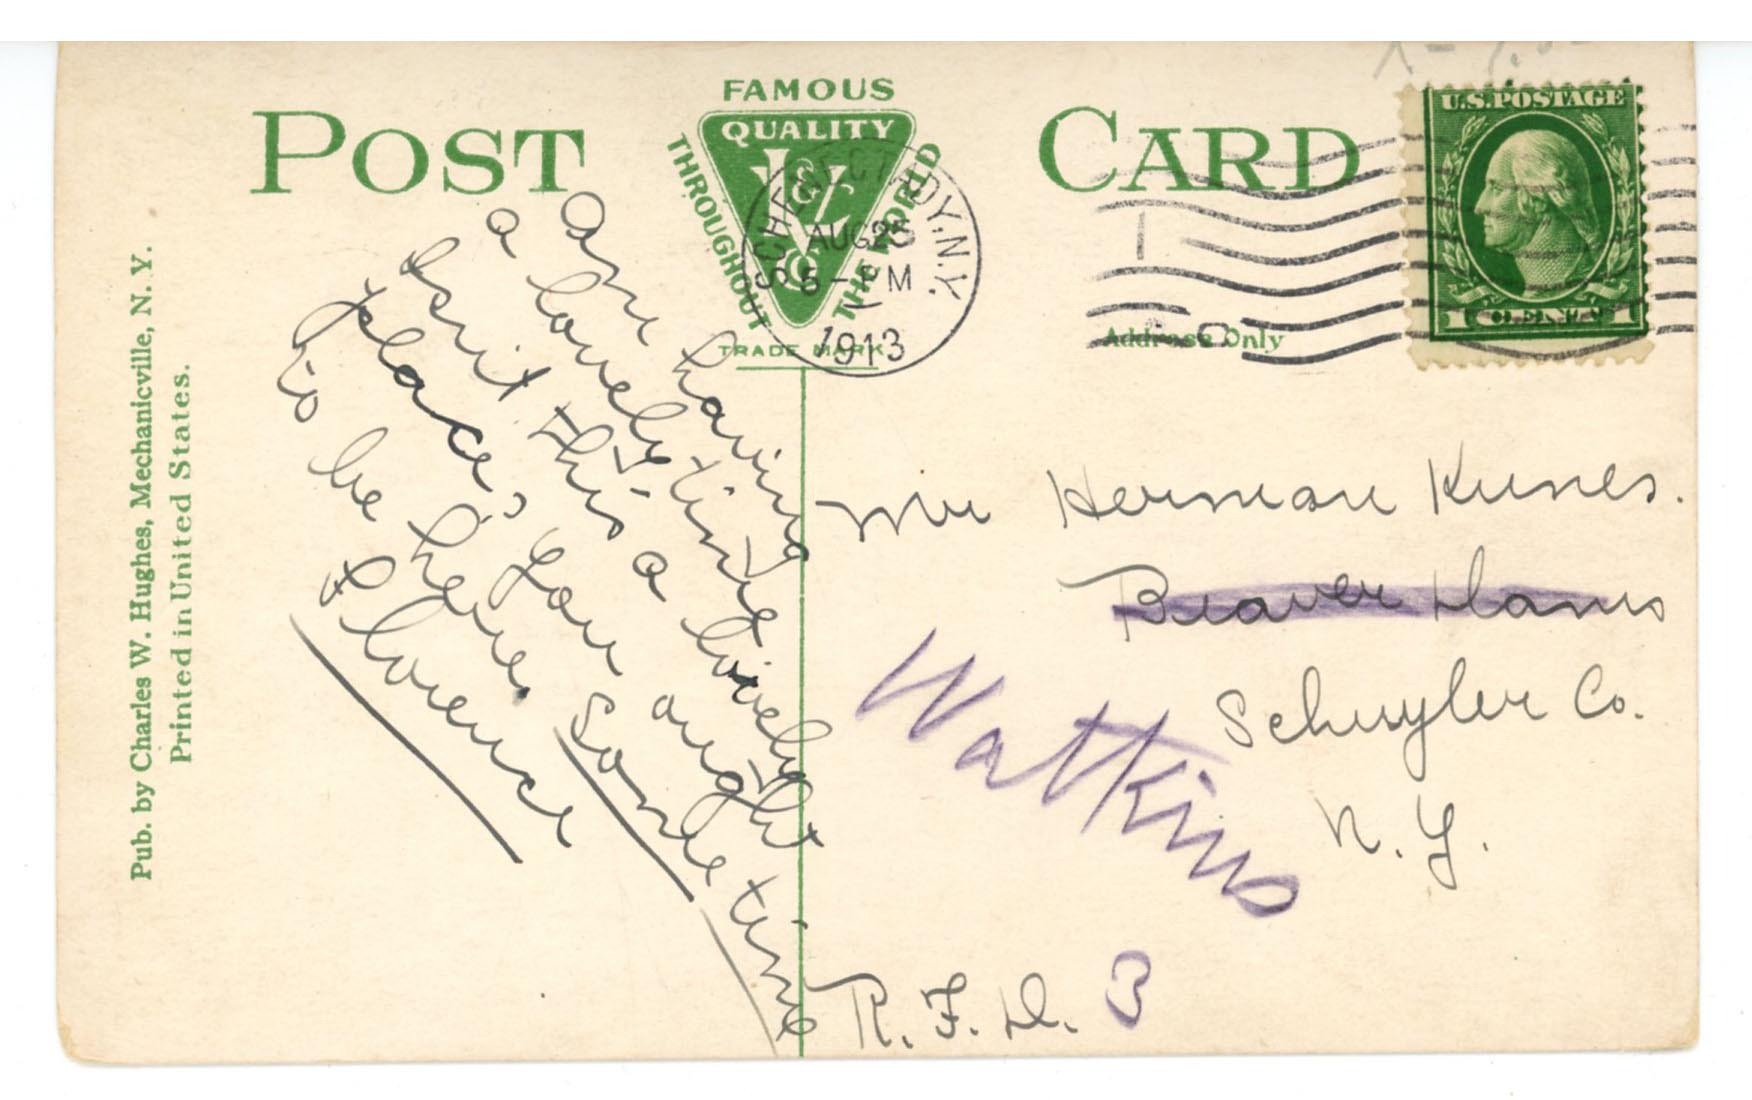 POST CARD
FAMOUS
QUALITY
THROUGHOUT
THE WORLD
TRADE MARK
SCHENECTADY, N.Y.
AUG 25
5 - PM
1913
U.S. POSTAGE
1 CENT 1
Address Only
Pub. by Charles W. Hughes, Mechanicville, N. Y.
Printed in United States.
Am having
a lovely time
Isnt this a lovely
place, you aught
to be here some time
Florence
Mr Herman Kunes.
Beaver Dams
Schuyler Co.
N. Y.
Watkins
R. F. D. 3